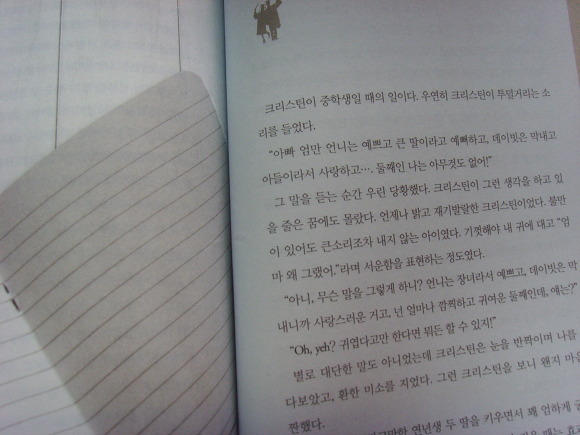 크리스틴이 중학생일 때의 일이다. 우연히 크리스틴이 투덜거리는 소
리를 들었다.
"아빠 엄만 언니는 예쁘고 큰 딸이라고 예뻐하고, 데이빗은 막내고
아들이라서 사랑하고…. 둘째인 나는 아무것도 없어!"
그 말을 듣는 순간 우린 당황했다. 크리스틴이 그런 생각을 하고 있
을 줄은 꿈에도 몰랐다. 언제나 밝고 재기발랄한 크리스틴이었다. 불만
이 있어도 큰소리조차 내지 않는 아이였다. 기껏해야 내 귀에 대고 "엄
마 왜 그랬어."라며 서운함을 표현하는 정도였다.
"아니, 무슨 말을 그렇게 하니? 언니는 장녀라서 예쁘고, 데이빗은 막
내니까 사랑스러운 거고, 넌 얼마나 깜찍하고 귀여운 둘째인데, 얘는?"
"Oh, yeh? 귀엽다고만 한다면 뭐든 할 수 있지!"
별로 대단한 말도 아니었는데 크리스틴은 눈을 반짝이며 나를
다보았고, 환한 미소를 지었다. 그런 크리스틴을 보니 왠지 마음
짠했다.
연년생 두 딸을 키우면서 꽤 엄하게